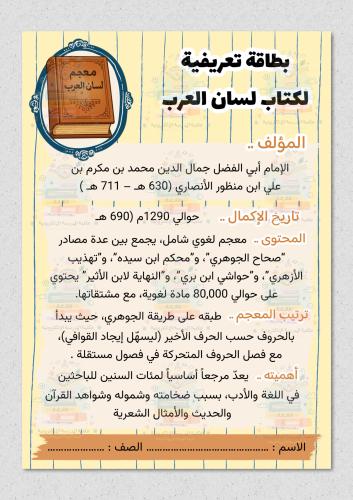 بطاقة تعريفية
لكتاب لسان العرب
معجم
لسان العرب
المؤلف ..
الإمام أبي الفضل جمال الدين محمد بن مكرم بن
علي ابن منظور الأنصاري (630 هـ – 711 هـ )
تاريخ الإكمال .. حوالي 1290م (690 هـ
المحتوى .. معجم لغوي شامل، يجمع بين عدة مصادر
"صحاح الجوهري"، و"محكم ابن سيده"، و"تهذيب
الأزهري"، و"حواشي ابن بري"، و"النهاية لابن الأثير" يحتوي
على حوالي 80,000 مادة لغوية، مع مشتقاتها.
ترتيب المعجم .. طبقه على طريقة الجوهري، حيث يبدأ
بالحروف حسب الحرف الأخير (ليسهّل إيجاد القوافي)،
مع فصل الحروف المتحركة في فصول مستقلة .
أهميته .. يعدّ مرجعاً أساسياً لمئات السنين للباحثين
في اللغة والأدب، بسبب ضخامته وشموله وشواهد القرآن
والحديث والأمثال الشعرية
الاسم : ................................................ الصف : .....................